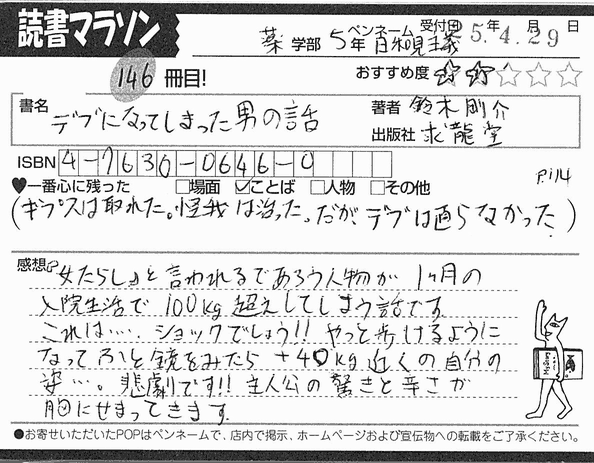 読書マラソン
薬 学部 5年 ペンネーム 日和見主義 受付日 5年 4月 29日
146 冊目! おすすめ度 ☆☆☆☆☆
書名 デブになってしまった男の話 著者 鈴木剛介
出版社 求龍堂
ISBN 4-7630-0646-0
♥一番心に残った □場面 ☑ことば □人物 □その他 P.114
(ギプスは取れた。怪我は治った。だが、デブは直らなかった。)
感想 『女たらし』と言われるであろう人物が 1ヶ月の
入院生活で 100kg 超えしてしまう話です
これは…. ショックでしょう!! やっと歩けるように
なって ふと鏡をみたら +40kg 近くの自分の
姿…。悲劇です!! 主人公の驚きと辛さが
胸にせまってきます。
●お寄せいただいたPOPはペンネームで、店内で掲示、ホームページおよび宣伝物への転載をご了承ください。